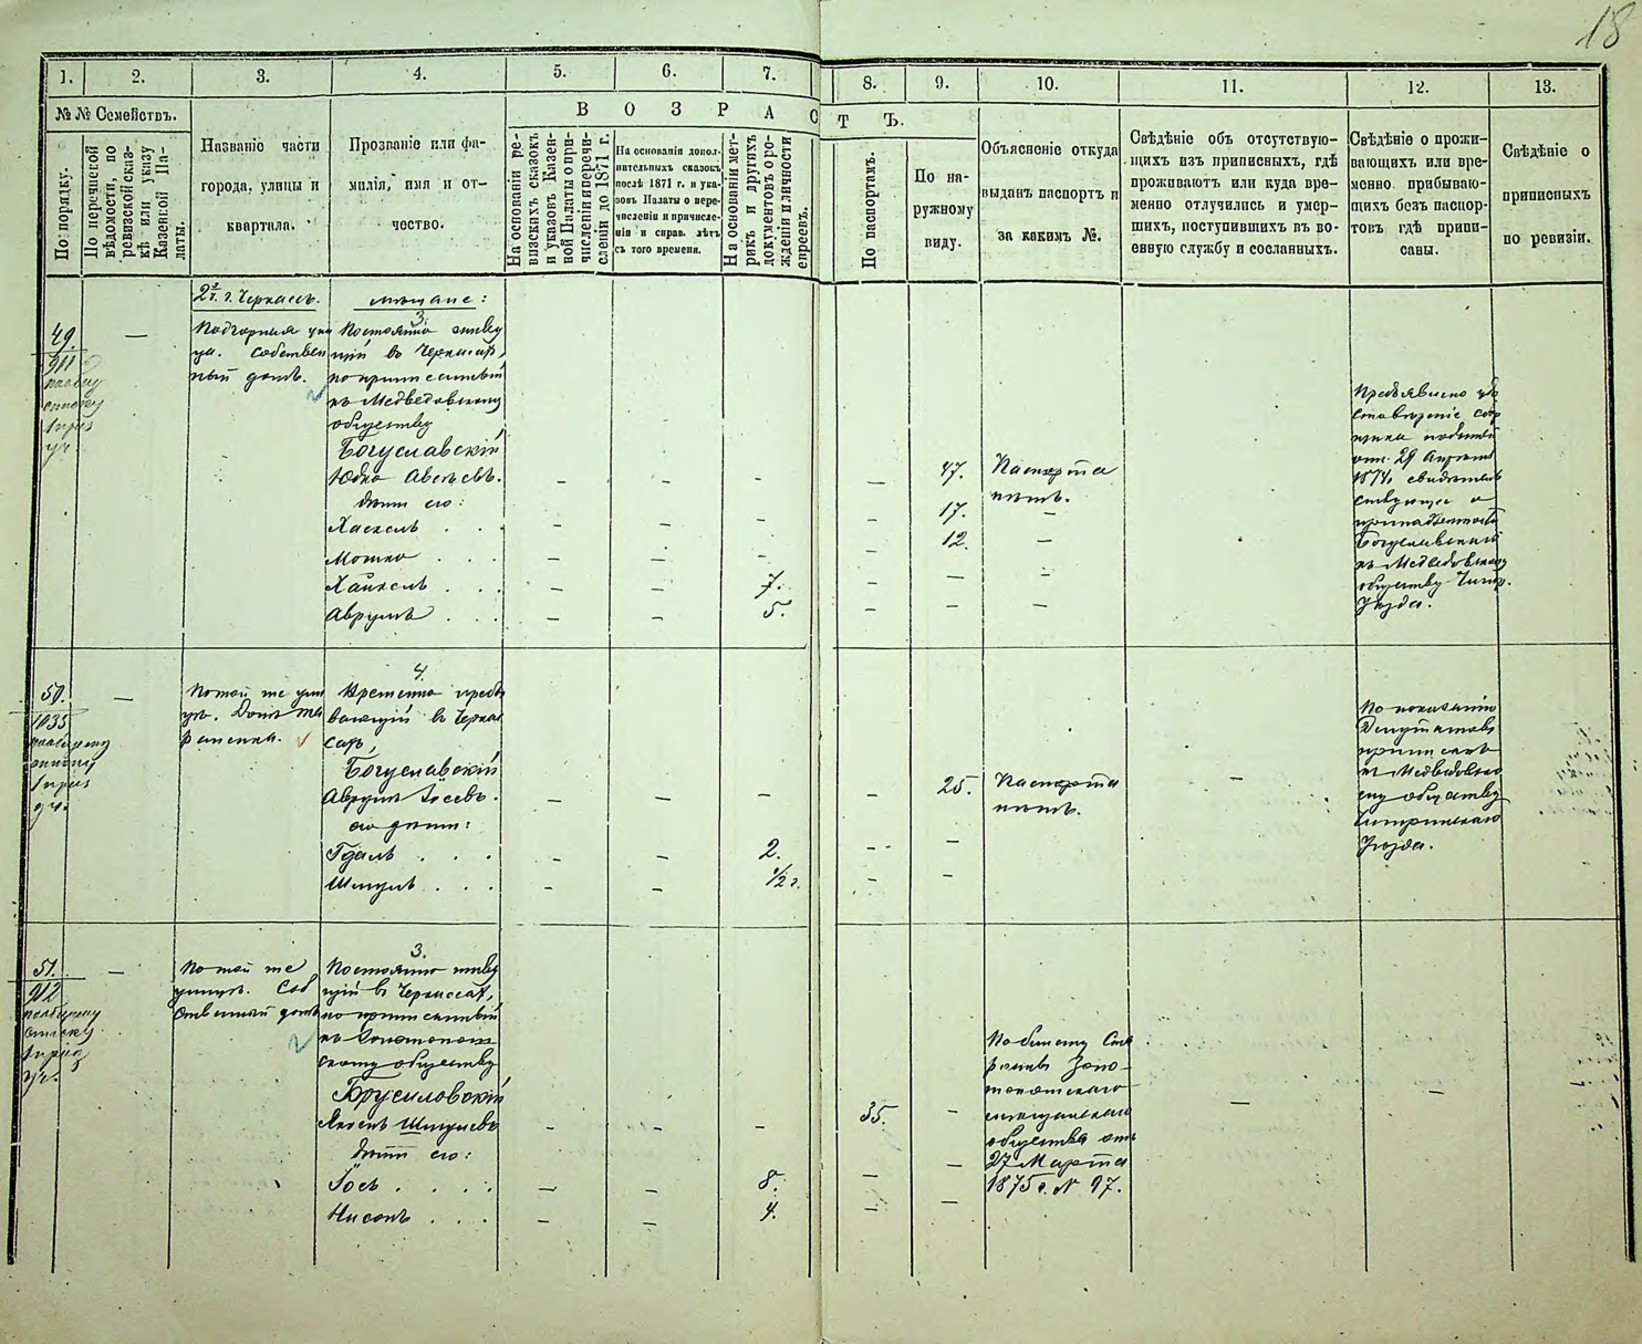 18
1. 2. 3. 4. 5. 6. 7. 8. 9. 10. 11. 12. 13.
№ № Семействъ.
По порядку.
По перечневой
вѣдомости, по
ревизской сказ-
кѣ или указу
Казенной Па-
латы.
Названіе части
города, улицы и
квартала.
Прозваніе или фа-
милія, имя и от-
чество.
ВОЗРАСТЪ.
На основаніи ре-
визскихъ сказокъ
и указовъ Казен-
вой Палаты о при-
численіи и перечи-
сленіи до 1871 г.
На основаніи допол-
нительныхъ сказокъ
послѣ 1871 г. и ука-
зовъ Палаты о пере-
численіи и причисле-
ніи и справ. лѣтъ
съ того времени.
На основаніи мет-
рикъ и другихъ
документовъ о ро-
жденіи и личности
евреевъ.
По паспортамъ.
По на-
ружному
виду.
Объясненіе откуда
выданъ паспортъ и
за какимъ №.
Свѣдѣніе объ отсутствую-
щихъ изъ приписныхъ, гдѣ
проживаютъ или куда вре-
менно отлучились и умер-
шихъ, поступившихъ въ во-
енную службу и сосланныхъ.
Свѣдѣніе о прожи-
вающихъ или вре-
менно прибываю-
щихъ безъ паспор-
товъ гдѣ припи-
саны.
Свѣдѣніе о
приписныхъ
по ревизіи.
г. Черкассъ.
мѣщане:
49.
911
—
Подгорная ули
ца. Собствен
ный домъ.
3.
Постоянно живу
щій въ Черкасах,
но приписанный
къ Медведовскому
обществу
Богуславскій
Юдко Авсѣевъ. — — — — 47. Паспорта
нѣтъ.
дѣти его:
Хаскель . . . — — — — 17. —
Мошко . . . — — — — 12. —
Хаикель . . . — — 7. — — —
Аврумъ . . . — — 5. — — —
Предъявлено удо
отъ 29 Апрѣля
1874, свидѣтель
ствующее о
принадлежности
Богуславскій
къ Медведовскому
обществу Чигир.
Уѣзда.
50.
1035
—
По той же ули
цѣ. Домъ
4.
Временно пребы
вающій въ Черкас
сах,
Богуславскій
Аврумъ Іосевъ. — — — — 25. Паспорта
нѣтъ.
—
его дѣти:
Гдаль . . . — — 2. — —
Шмуль . . . — — 1/2 г. — —
По показанію
Депутатовъ
приписанъ
къ Медведовско
му обществу
Чигиринскаго
Уѣзда.
51.
912
—
По той же
улицѣ. Соб
ственный домъ
3.
Постоянно живу
щій въ Черкассах,
но приписанный
къ Золотонош
скому обществу
Брусиловскій
Янкель Шмулевъ — — — 35. —
дѣти его:
Іось . . . . — — 8. — —
Нисонъ . . . — — 4. — —
По билету Ста
росты Золо-
тоношскаго
мѣщанскаго
общества отъ
27 Марта
1875 г. № 97.
— —